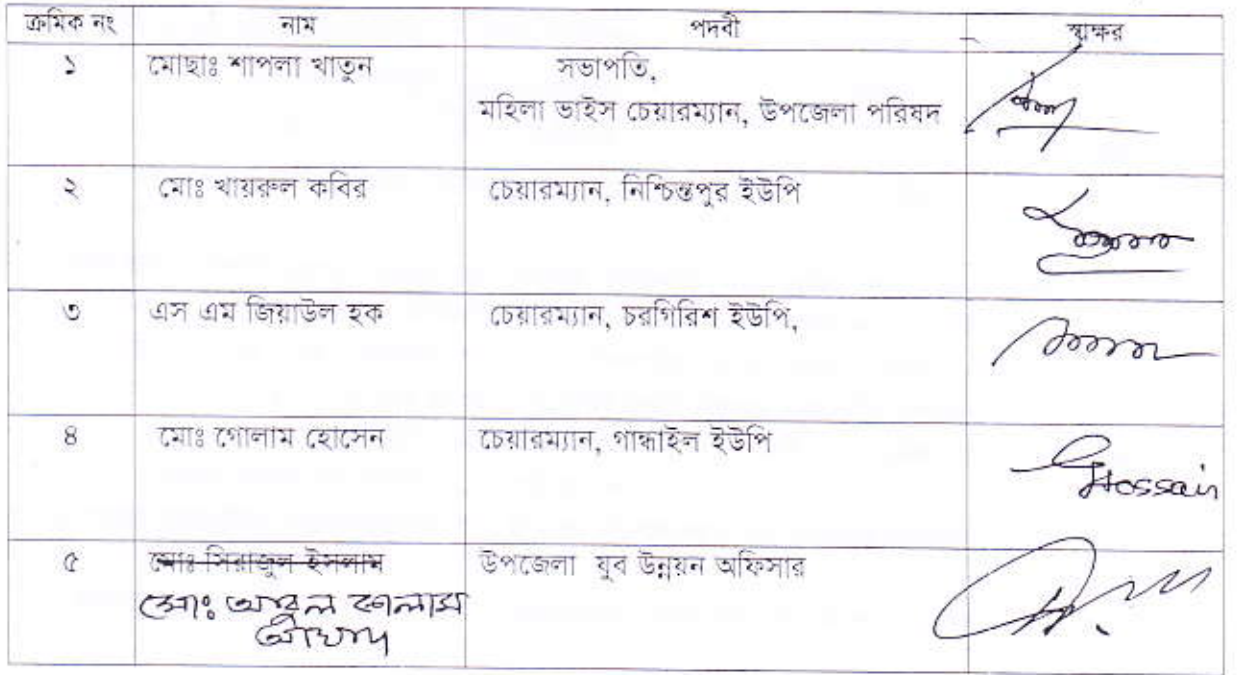 ক্রমিক নং নাম পদবী স্বাক্ষর
১ মোছাঃ শাপলা খাতুন সভাপতি,
মহিলা ভাইস চেয়ারম্যান, উপজেলা পরিষদ
২ মোঃ খায়রুল কবির চেয়ারম্যান, নিশ্চিন্তপুর ইউপি
৩ এস এম জিয়াউল হক চেয়ারম্যান, চরগিরিশ ইউপি,
৪ মোঃ গোলাম হোসেন চেয়ারম্যান, গান্ধাইল ইউপি
GHossain
৫ মোঃ সিরাজুল ইসলাম উপজেলা যুব উন্নয়ন অফিসার
মোঃ আবুল কালাম
আযাদ